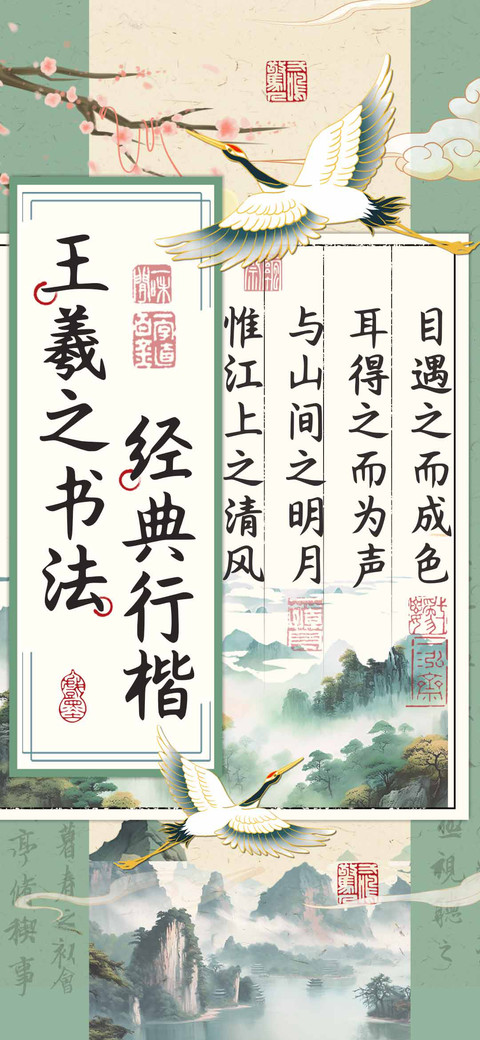 王羲之书法
经典行楷
惟江上之清风
与山间之明月
耳得之而为声
目遇之而成色
暮春之初會
亭脩稧事
極視聽之